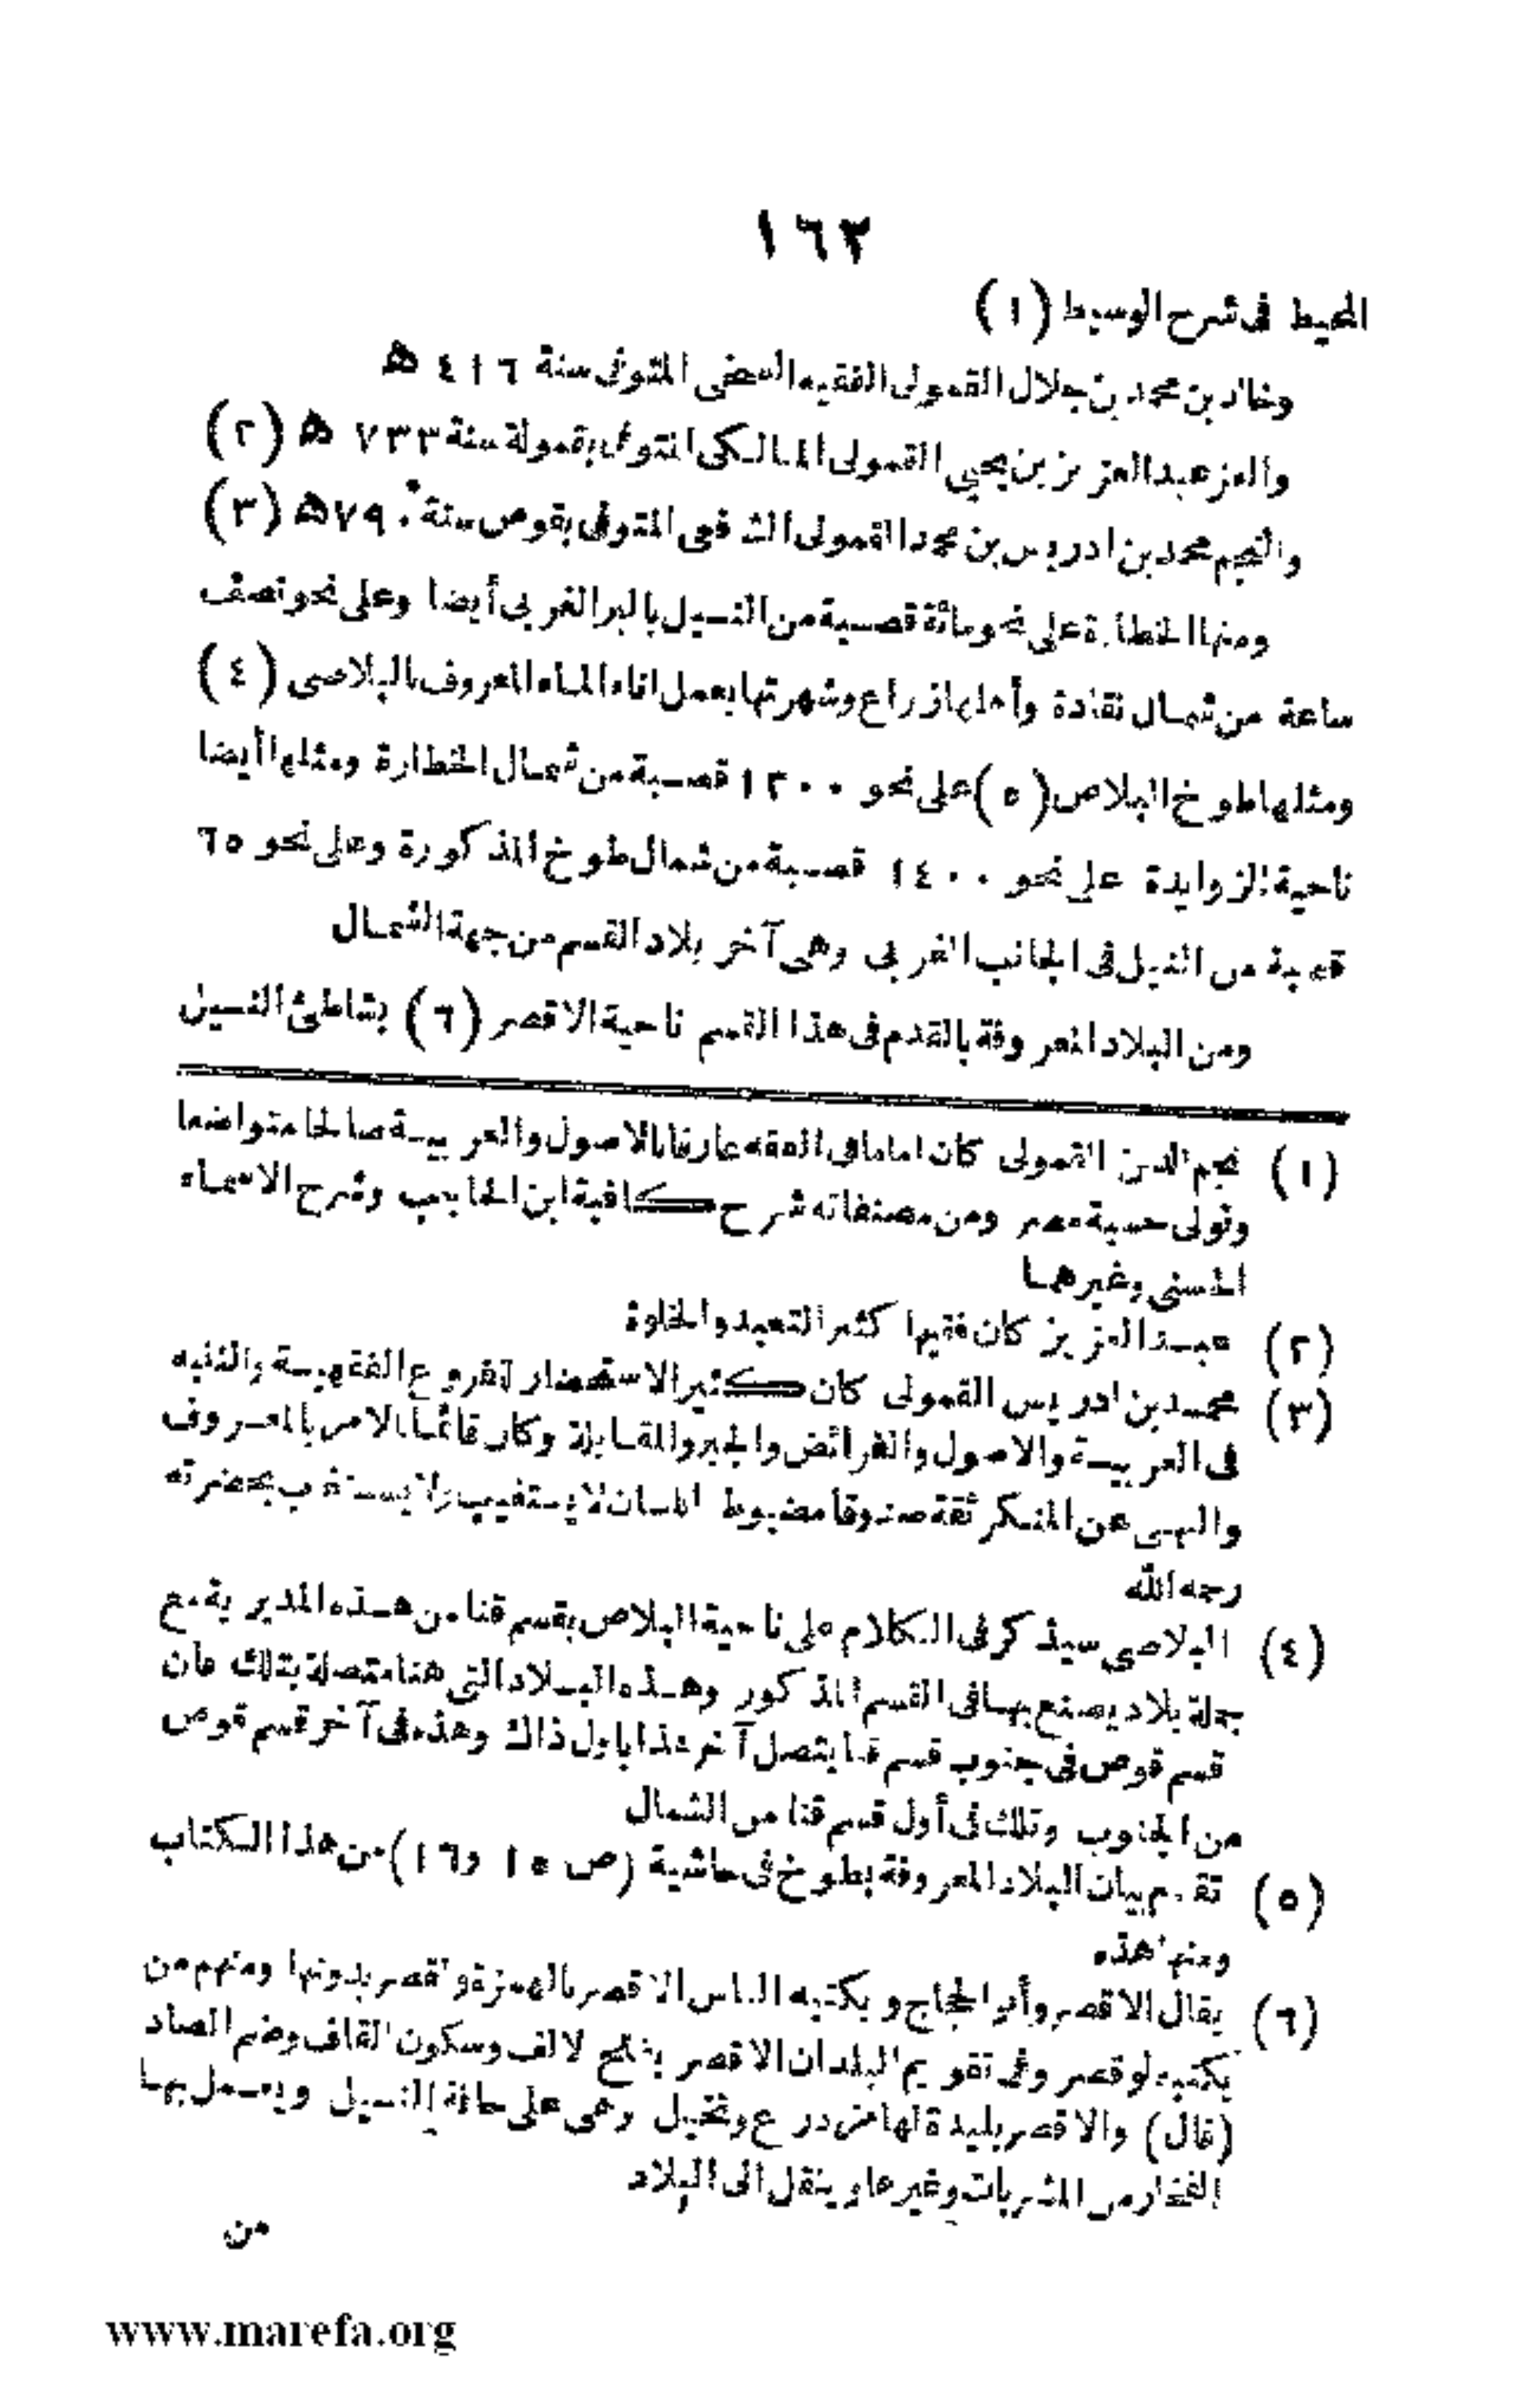 ١٦٣
المحيط فى شرح الوسيط (١)
وخالد بن محمد بن جلال القمولى الفقيه المتوفى سنة ٤١٦ ه
والعز عبد العزيز بن يحيى القمولى المالكى المتوفى بقمولة سنة ٧٣٣ ه (٢)
والنجم محمد بن ادريس بن محمد القمولى الشافعى المتوفى بقوص سنة ٧٩٠ ه (٣)
ومنها الخطارة على نحو مائة قصبة من النيل بالبر الغربى أيضا وعلى نحو نصف
ساعة من شمال نقادة وأهلها زراع وشهرتها بعمل اناء الماء المعروف بالبلاصى (٤)
ومثلها طوخ البلاص (٥) على نحو ١٢٠٠ قصبة من شمال الخطارة ومثلها أيضا
ناحية الزوايدة على نحو ١٤٠٠ قصبة من شمال طوخ المذكورة وعلى نحو ٦٥
قصبة من النيل فى الجانب الغربى وهى آخر بلاد القسم من جهة الشمال
ومن البلاد المعروفة بالقدم فى هذا القسم ناحية الاقصر (٦) بشاطئ النيل
(١) نجم الدين القمولى كان اماما فى الفقه عارفا بالاصول والعربية صالحا متواضعا
وتولى حسبة مصر ومن مصنفاته شرح كافية ابن الحاجب وشرح الاسماء
الحسنى وغيرهما
(٢) عبد العزيز كان فقيها كثير التعبد والخلوة
(٣) محمد بن ادريس القمولى كان كثير الاستحضار لفروع الفقهية والتنبه
فى العربية والاصول والفرائض والجبر والمقابلة وكان قائما بالامر بالمعروف
والنهى عن المنكر ثقة صدوقا مضبوط اللسان لا يستغيب ولا يستغاب بحضرته
رحمه الله
(٤) البلاصى سيذكر فى الكلام على ناحية البلاص بقسم قنا من هذه المديرية مع
جملة بلاد يصنع بها فى القسم المذكور وهذه البلاد التى هنا متصلة بتلك فان
قسم قوص فى جنوب قسم قنا يتصل آخر هذا باول ذاك وهذه فى آخر قسم قوص
من الجنوب وتلك فى أول قسم قنا من الشمال
(٥) تقدم بيان البلاد المعروفة بطوخ فى حاشية (ص ١٥ و ١٦) من هذا الكتاب
ومنها هذه
(٦) يقال الاقصر وأبو الحجاج ويكتبه الناس الاقصر بالهمزة ولقصر بدونها ومنهم من
يكتبه لوقصر وفى تقويم البلدان الاقصر بفتح لالف وسكون القاف وضم الصاد
(قال) والاقصر بليدة لها مزدرع ونخيل وهى على حافة النيل ويعمل بها
الفخار من المشربات وغيرها وينقل الى البلاد
من
www.marefa.org